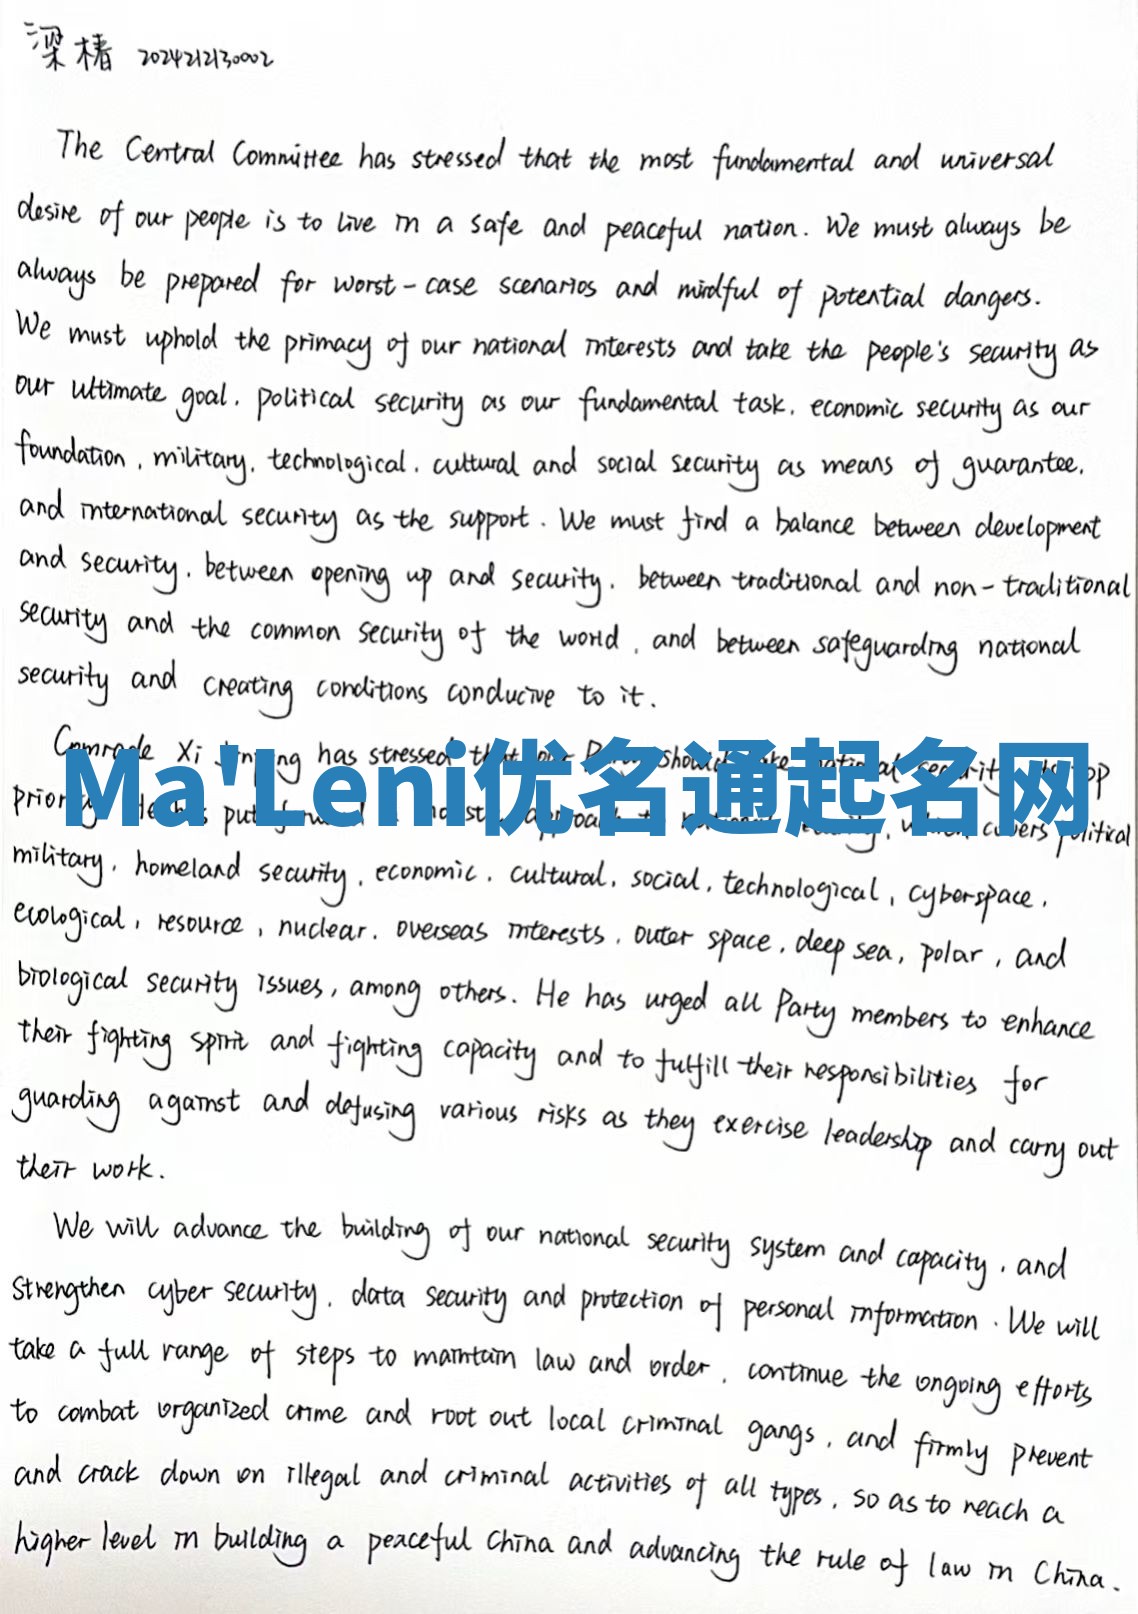 梁椿 2024212130002
The Central Committee has stressed that the most fundamental and universal
desire of our people is to live in a safe and peaceful nation. We must always be
always be prepared for worst-case scenarios and mindful of potential dangers.
We must uphold the primacy of our national interests and take the people's security as
our ultimate goal, political security as our fundamental task, economic security as our
foundation, military, technological, cultural and social security as means of guarantee,
and international security as the support. We must find a balance between development
and security, between opening up and security, between traditional and non-traditional
security and the common security of the world, and between safeguarding national
security and creating conditions conducive to it.
Comrade Xi Jinping has stressed that our should national security top
Ma'Leni优名通起名网
put covers political
military, homeland security, economic, cultural, social, technological, cyberspace,
ecological, resource, nuclear, overseas interests, outer space, deep sea, polar, and
biological security issues, among others. He has urged all Party members to enhance
their fighting spirit and fighting capacity and to fulfill their responsibilities for
guarding against and defusing various risks as they exercise leadership and carry out
their work.
We will advance the building of our national security system and capacity, and
strengthen cyber security, data security and protection of personal information. We will
take a full range of steps to maintain law and order, continue the ongoing efforts
to combat organized crime and root out local criminal gangs, and firmly prevent
and crack down on illegal and criminal activities of all types, so as to reach a
higher level in building a peaceful China and advancing the rule of law in China.